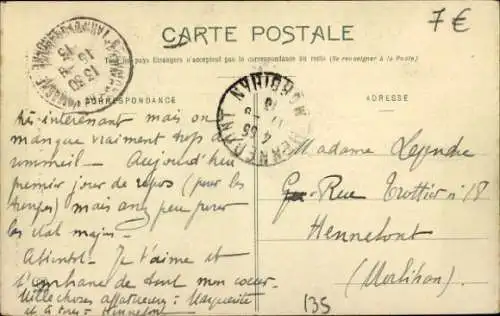 CARTE POSTALE
7€
Tous les pays Etrangers n'acceptent pas la correspondance au recto (Se renseigner à la Poste)
CORRESPONDANCE
ADRESSE
HENNEBONT MORBIHAN
très intéressant mais on
manque vraiment trop de
sommeil - Aujourd'hui
premier jour de repos (pour les
troupes) mais un peu pour
les état major -
A bientôt - Je t'aime et
t'embrasse de tout mon coeur
Mille choses affectueuses à Marguerite
et à tous - Hennebont
Madame Lejendre
Rue Trottier n° 18
Hennebont
(Morbihan)
135